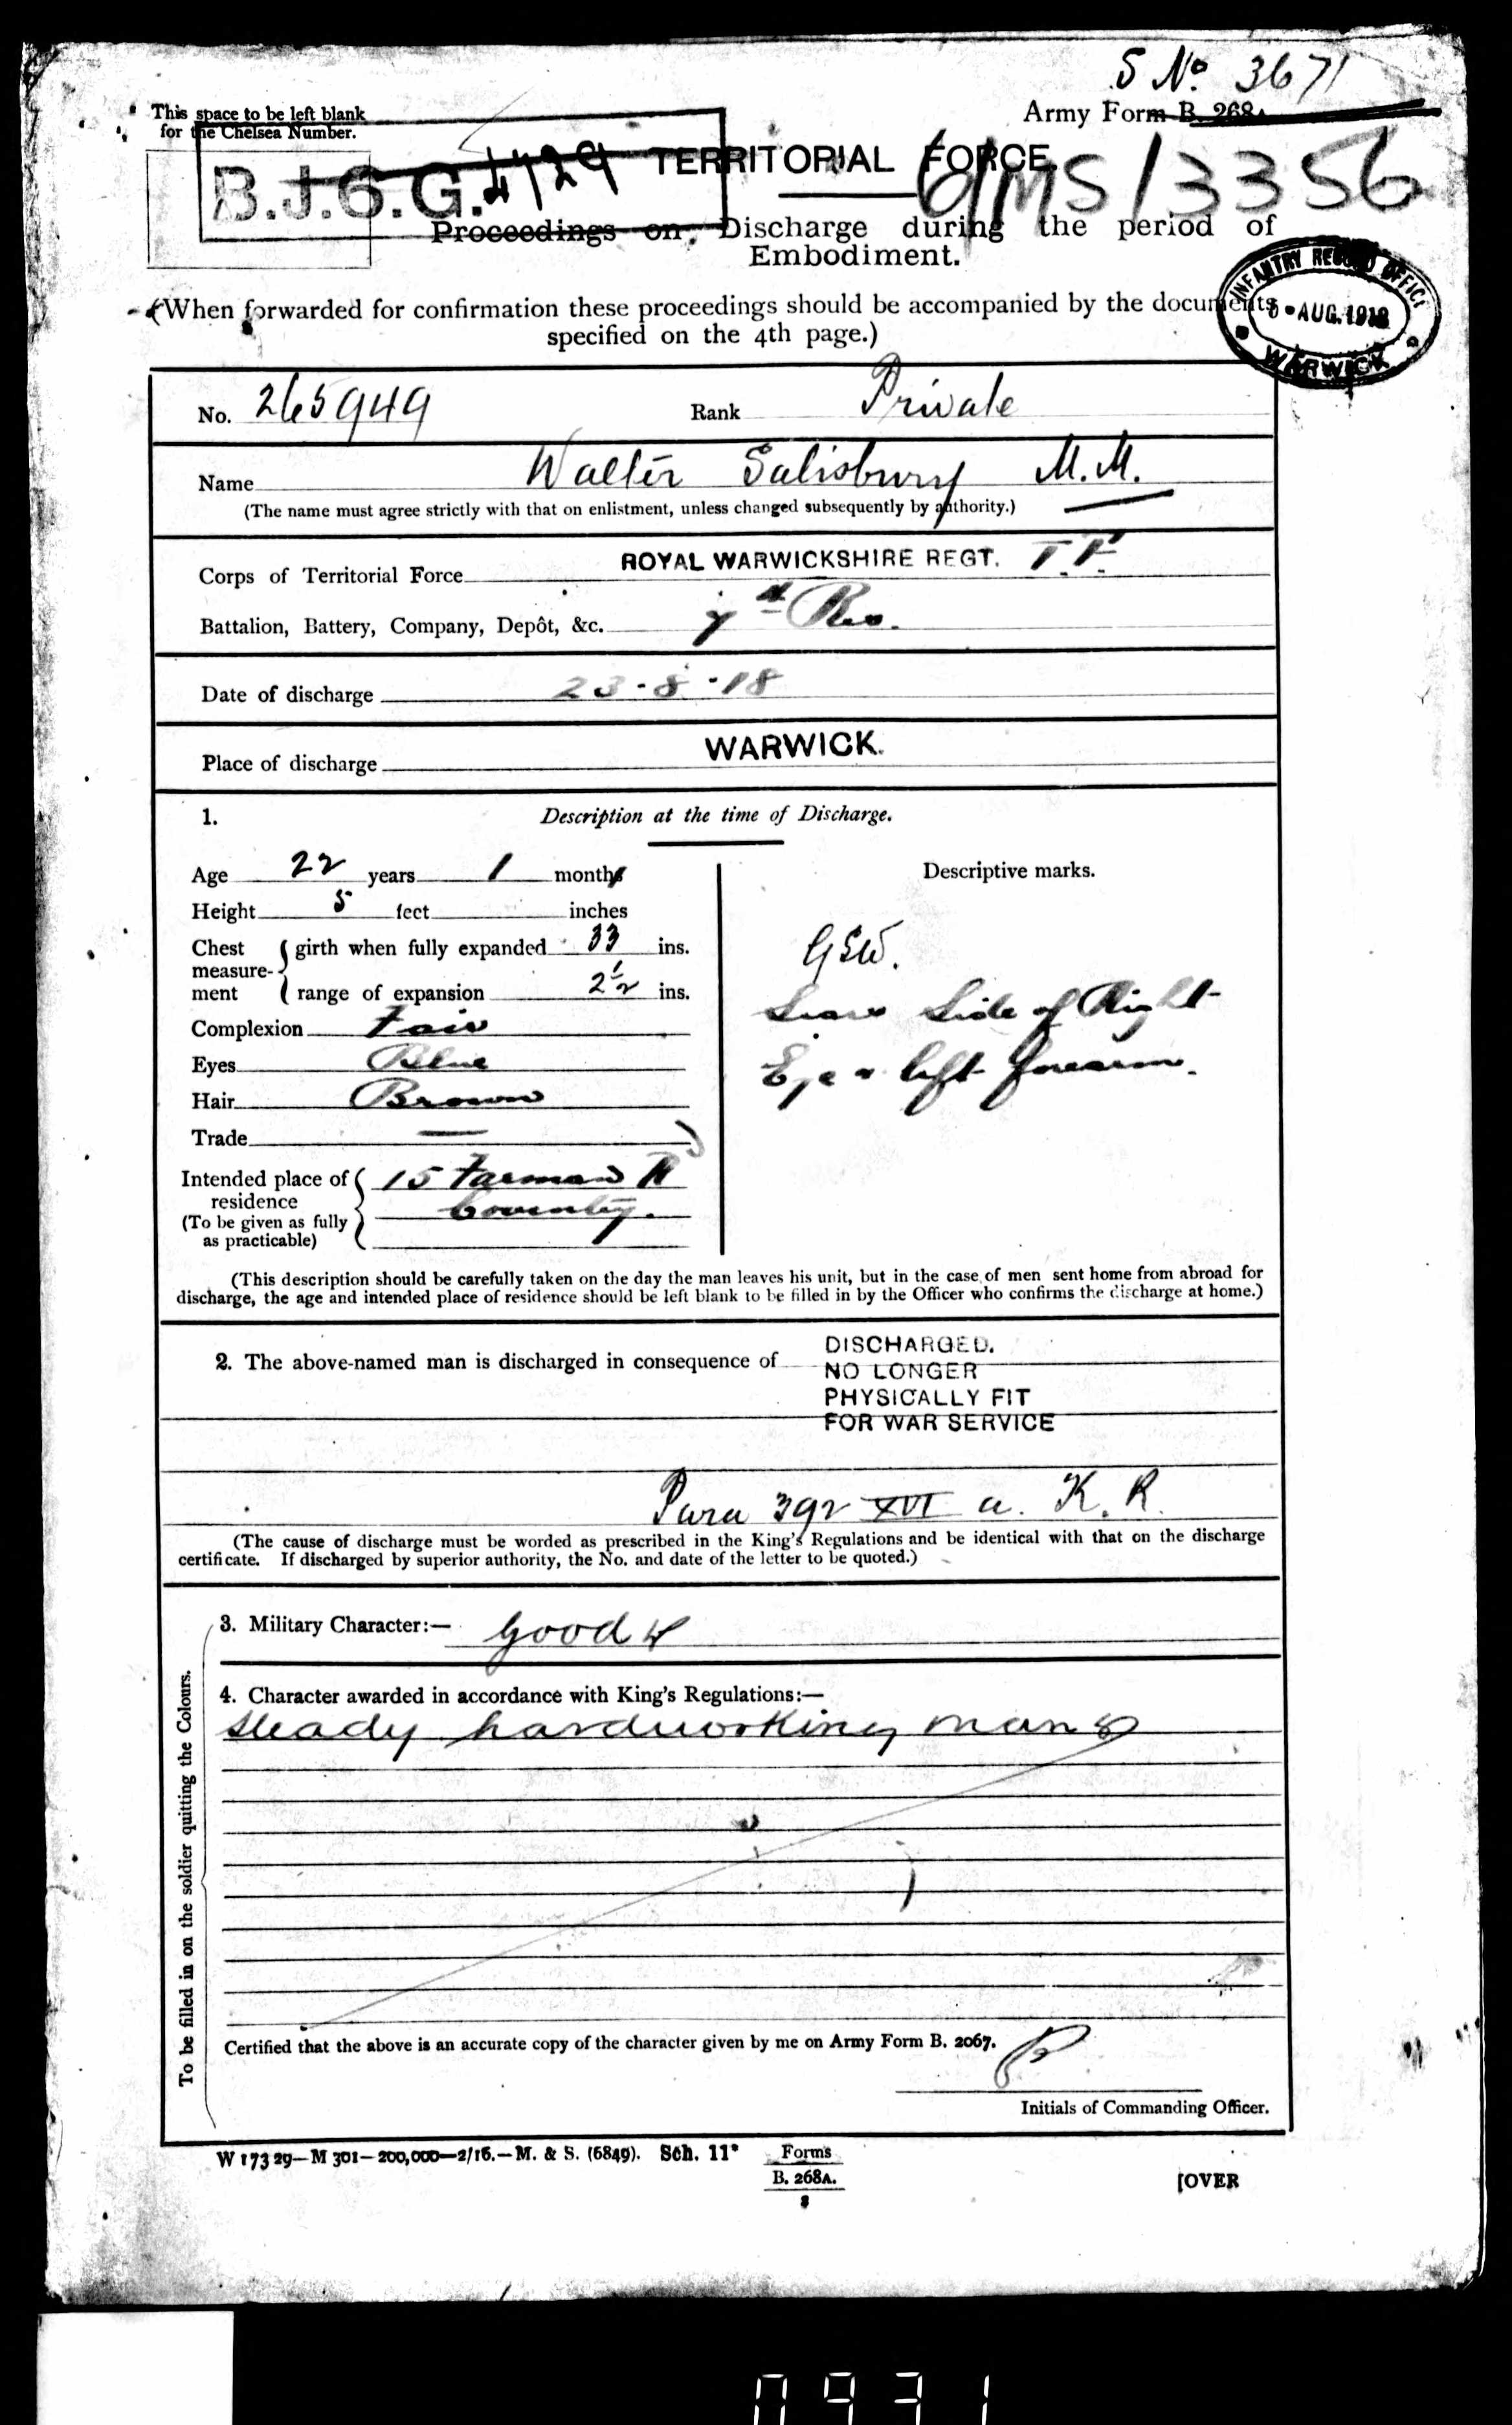 S No. 3671
This space to be left blank
for the Chelsea Number.
Army Form B. 268A
B.J.6.G. 4729
TERRITORIAL FORCE
/MS/3356
Proceedings on Discharge during the period of
Embodiment.
INFANTRY RECORD OFFICE
AUG. 1918
WARWICK
(When forwarded for confirmation these proceedings should be accompanied by the documents
specified on the 4th page.)
No. 265949 Rank Private
Name Walter Salisbury M.M.
(The name must agree strictly with that on enlistment, unless changed subsequently by authority.)
Corps of Territorial Force ROYAL WARWICKSHIRE REGT. T.F.
Battalion, Battery, Company, Depôt, &c. 7th Res.
Date of discharge 23-8-18
Place of discharge WARWICK.
1. Description at the time of Discharge.
Age 22 years 1 months
Height 5 feet inches
Chest measurement { girth when fully expanded 33 ins.
range of expansion 2½ ins.
Complexion Fair
Eyes Blue
Hair Brown
Trade —
Intended place of residence (To be given as fully as practicable) { 15 Farman R
Coventry.
Descriptive marks.
GSW.
Scars Side of Right
Eye & left forearm.
(This description should be carefully taken on the day the man leaves his unit, but in the case of men sent home from abroad for
discharge, the age and intended place of residence should be left blank to be filled in by the Officer who confirms the discharge at home.)
2. The above-named man is discharged in consequence of DISCHARGED.
NO LONGER
PHYSICALLY FIT
FOR WAR SERVICE
Para 392 XVI a. K.R.
(The cause of discharge must be worded as prescribed in the King's Regulations and be identical with that on the discharge
certificate. If discharged by superior authority, the No. and date of the letter to be quoted.)
To be filled in on the soldier quitting the Colours.
3. Military Character:— Good
4. Character awarded in accordance with King's Regulations:—
Steady hardworking man
Certified that the above is an accurate copy of the character given by me on Army Form B. 2067.
Initials of Commanding Officer.
W 17329—M 301—200,000—2/16.—M. & S. (6849). Sch. 11. Forms
B. 268A.
8
[OVER
0931